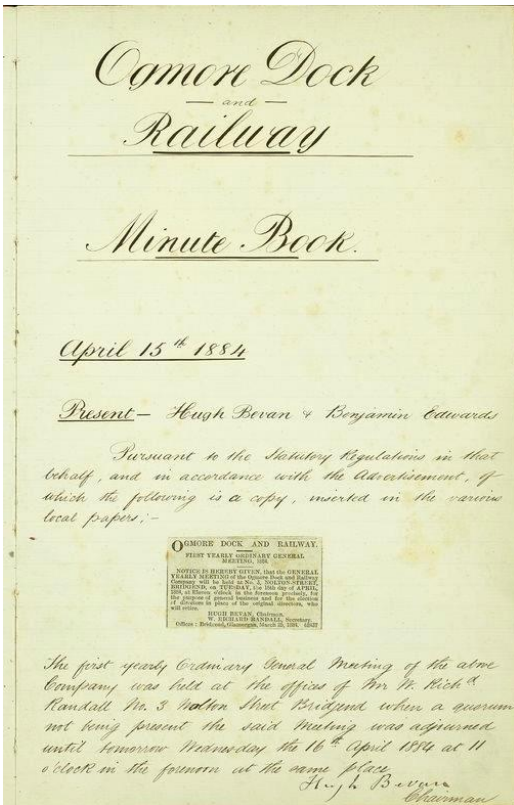 Ogmore Dock
— and —
Railway
Minute Book.
April 15th 1884
Present — Hugh Bevan & Benjamin Edwards
Pursuant to the Statutory Regulations in that
behalf, and in accordance with the Advertisement, of
which the following is a copy, inserted in the various
local papers; –
OGMORE DOCK AND RAILWAY.
FIRST YEARLY ORDINARY GENERAL
MEETING, 1884.
NOTICE IS HEREBY GIVEN, that the GENERAL
YEARLY MEETING of the Ogmore Dock and Railway
Company will be held at No. 3, NOLTON-STREET,
BRIDGEND, on TUESDAY, the 15th day of APRIL,
1884, at Eleven o'clock in the forenoon precisely, for
the purpose of general business and for the election
of directors in place of the original directors, who
will retire.
HUGH BEVAN, Chairman.
W. RICHARD RANDALL, Secretary.
Offices: Bridgend, Glamorgan, March 25, 1884.
The first yearly Ordinary General Meeting of the above
Company was held at the offices of Mr W. Richd
Randall No. 3 Nolton Street Bridgend when a quorum
not being present the said Meeting was adjourned
until tomorrow Wednesday the 16th April 1884 at 11
o'clock in the forenoon at the same place
Hugh Bevan
Chairman